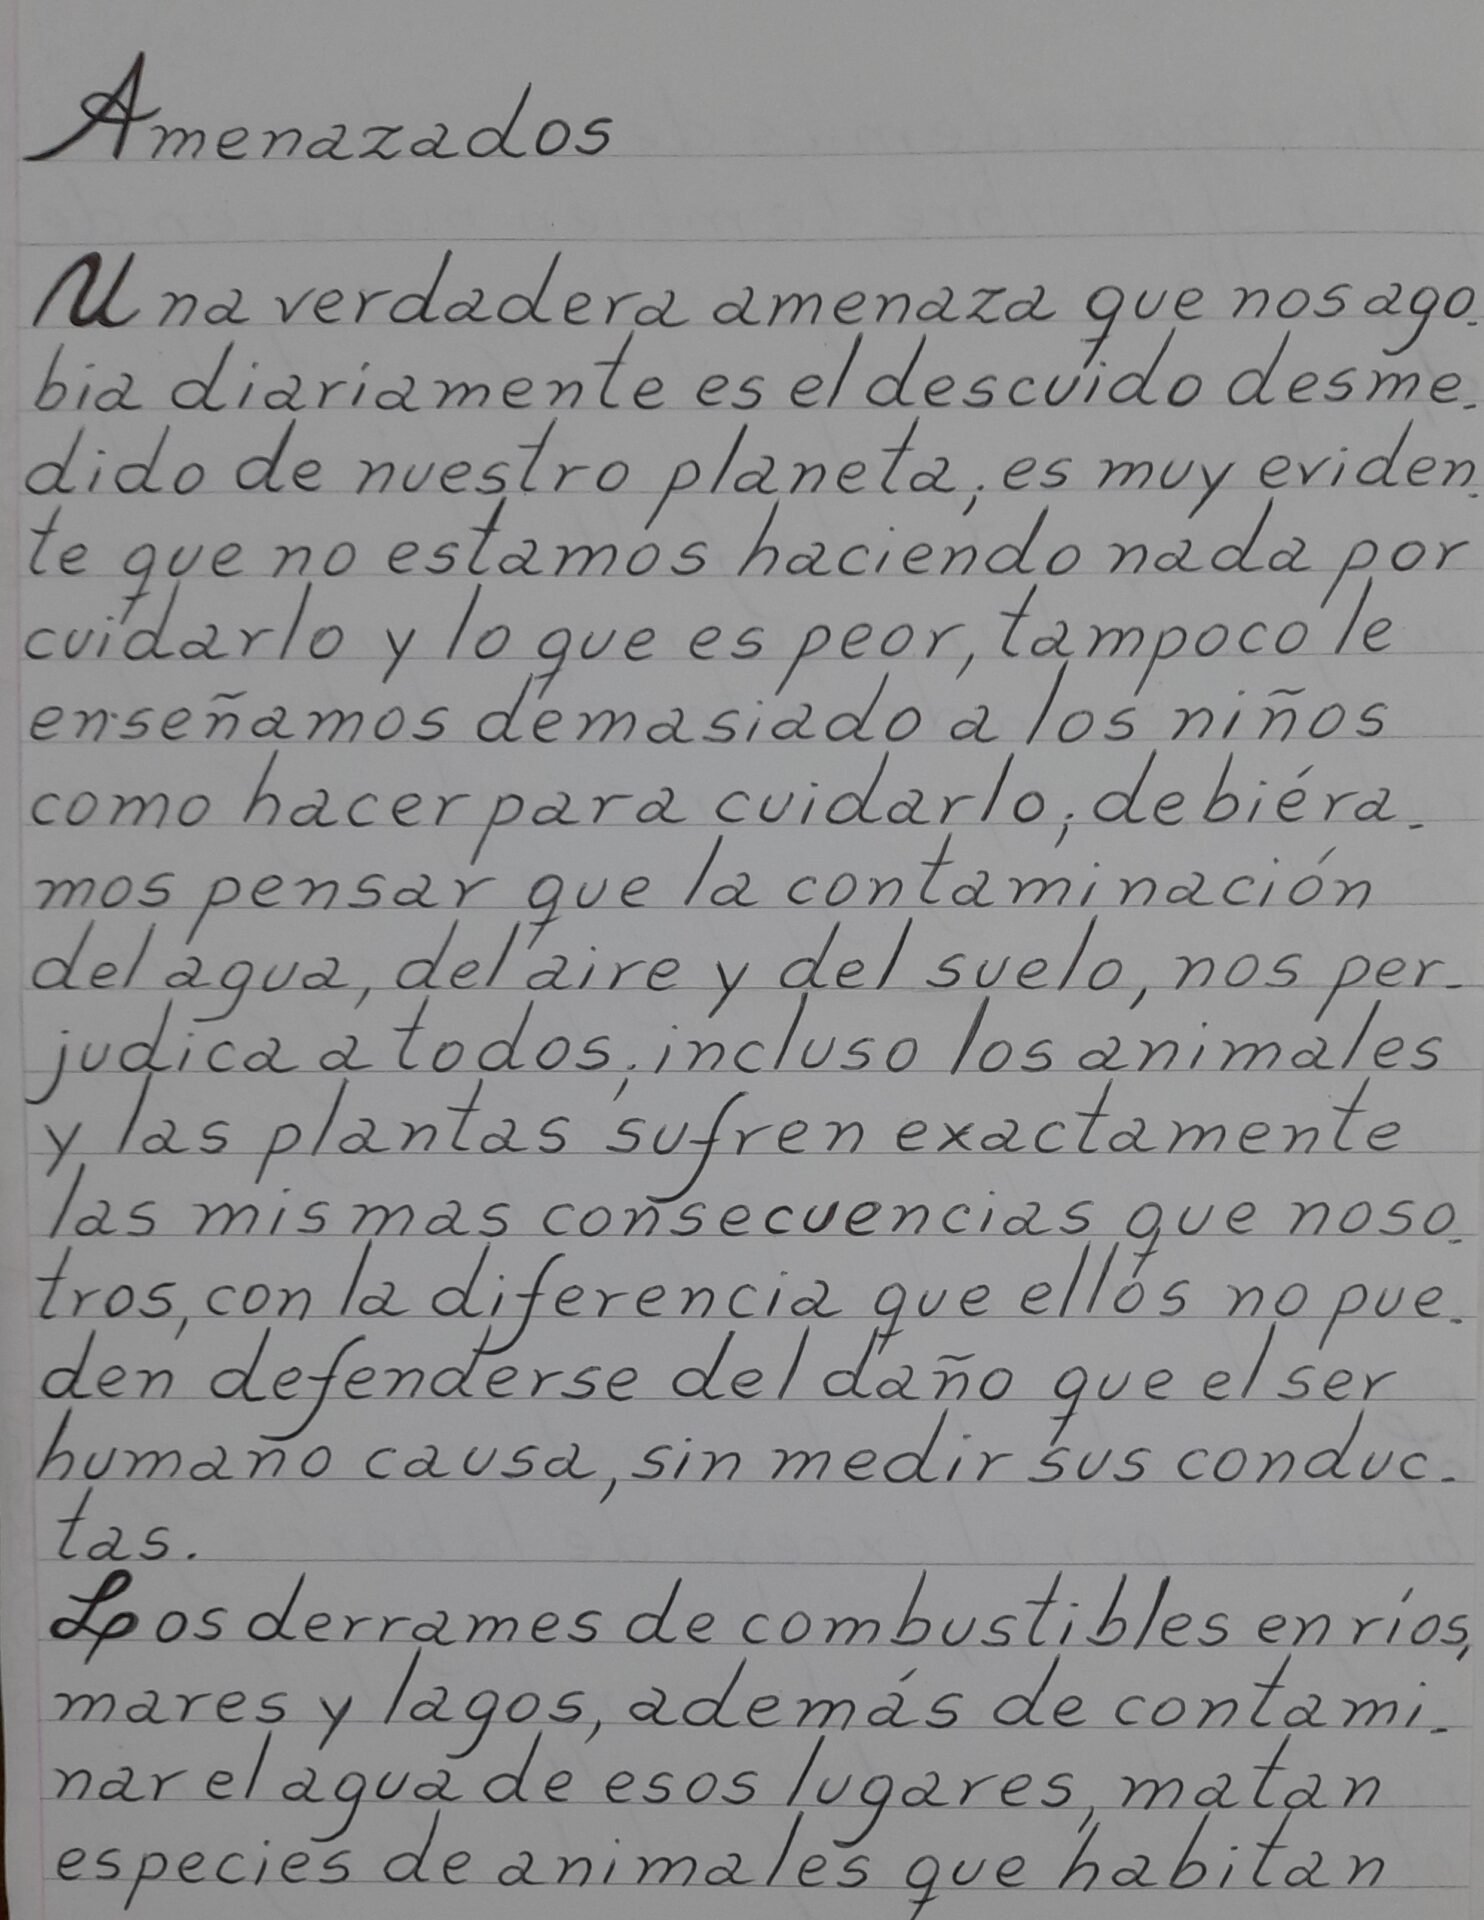 Amenazados
Una verdadera amenaza que nos ago-
bia diariamente es el descuido desme-
dido de nuestro planeta; es muy eviden-
te que no estamos haciendo nada por
cuidarlo y lo que es peor, tampoco le
enseñamos demasiado a los niños
como hacer para cuidarlo; debiéra-
mos pensar que la contaminación
del agua, del aire y del suelo, nos per-
judica a todos; incluso los animales
y las plantas sufren exactamente
las mismas consecuencias que noso-
tros, con la diferencia que ellos no pue-
den defenderse del daño que el ser
humano causa, sin medir sus conduc-
tas.
Los derrames de combustibles en ríos,
mares y lagos, además de contami-
nar el agua de esos lugares, matan
especies de animales que habitan